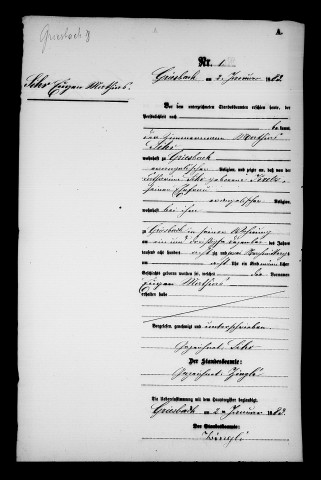 Griesbach 8
A.
Nr. 1
Griesbach, am 2. Januar 1882
Sehr Eugen Mathias.
Vor dem unterzeichneten Standesbeamten erschien heute, der
Persönlichkeit nach
kannt,
der Zimmermann Mathias
Sehr
wohnhaft zu Griesbach
evangelischer Religion, und zeigte an, daß von der
Sehr geborene
seiner Ehefrau
evangelischer Religion,
wohnhaft bei ihm
zu Griesbach in seiner Wohnung
am ein und dreißigsten Dezember des Jahres
tausend acht hundert achtzig
um acht Uhr ein Kind männlichen
Geschlechts geboren worden sei, welches die Vornamen
Eugen Mathias
erhalten habe
Vorgelesen, genehmigt und unterschrieben
Gezeichnet: Sehr
Der Standesbeamte:
Gezeichnet: Zinglé
Die Uebereinstimmung mit dem Hauptregister beglaubigt.
Griesbach, am 2. Januar 1882.
Der Standesbeamte:
Zinglé